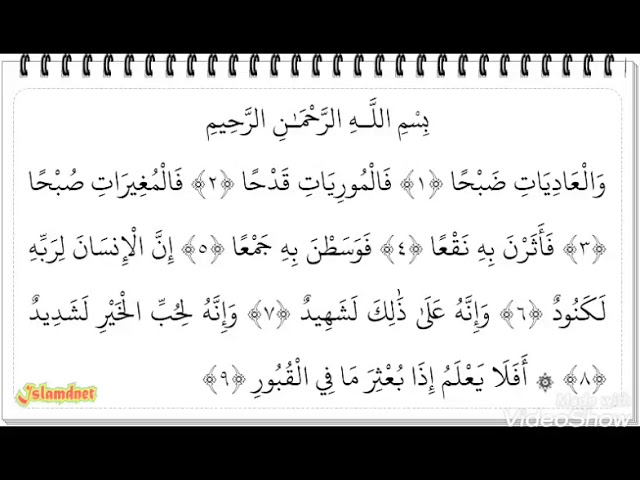 بِسْمِ اللَّـهِ الرَّحْمَـٰنِ الرَّحِيمِ
وَالْعَادِيَاتِ ضَبْحًا ﴿١﴾ فَالْمُورِيَاتِ قَدْحًا ﴿٢﴾ فَالْمُغِيرَاتِ صُبْحًا
﴿٣﴾ فَأَثَرْنَ بِهِ نَقْعًا ﴿٤﴾ فَوَسَطْنَ بِهِ جَمْعًا ﴿٥﴾ إِنَّ الْإِنسَانَ لِرَبِّهِ
لَكَنُودٌ ﴿٦﴾ وَإِنَّهُ عَلَىٰ ذَٰلِكَ لَشَهِيدٌ ﴿٧﴾ وَإِنَّهُ لِحُبِّ الْخَيْرِ لَشَدِيدٌ
﴿٨﴾ ۞ أَفَلَا يَعْلَمُ إِذَا بُعْثِرَ مَا فِي الْقُبُورِ ﴿٩﴾
Islamdnet
Made with
VideoShow